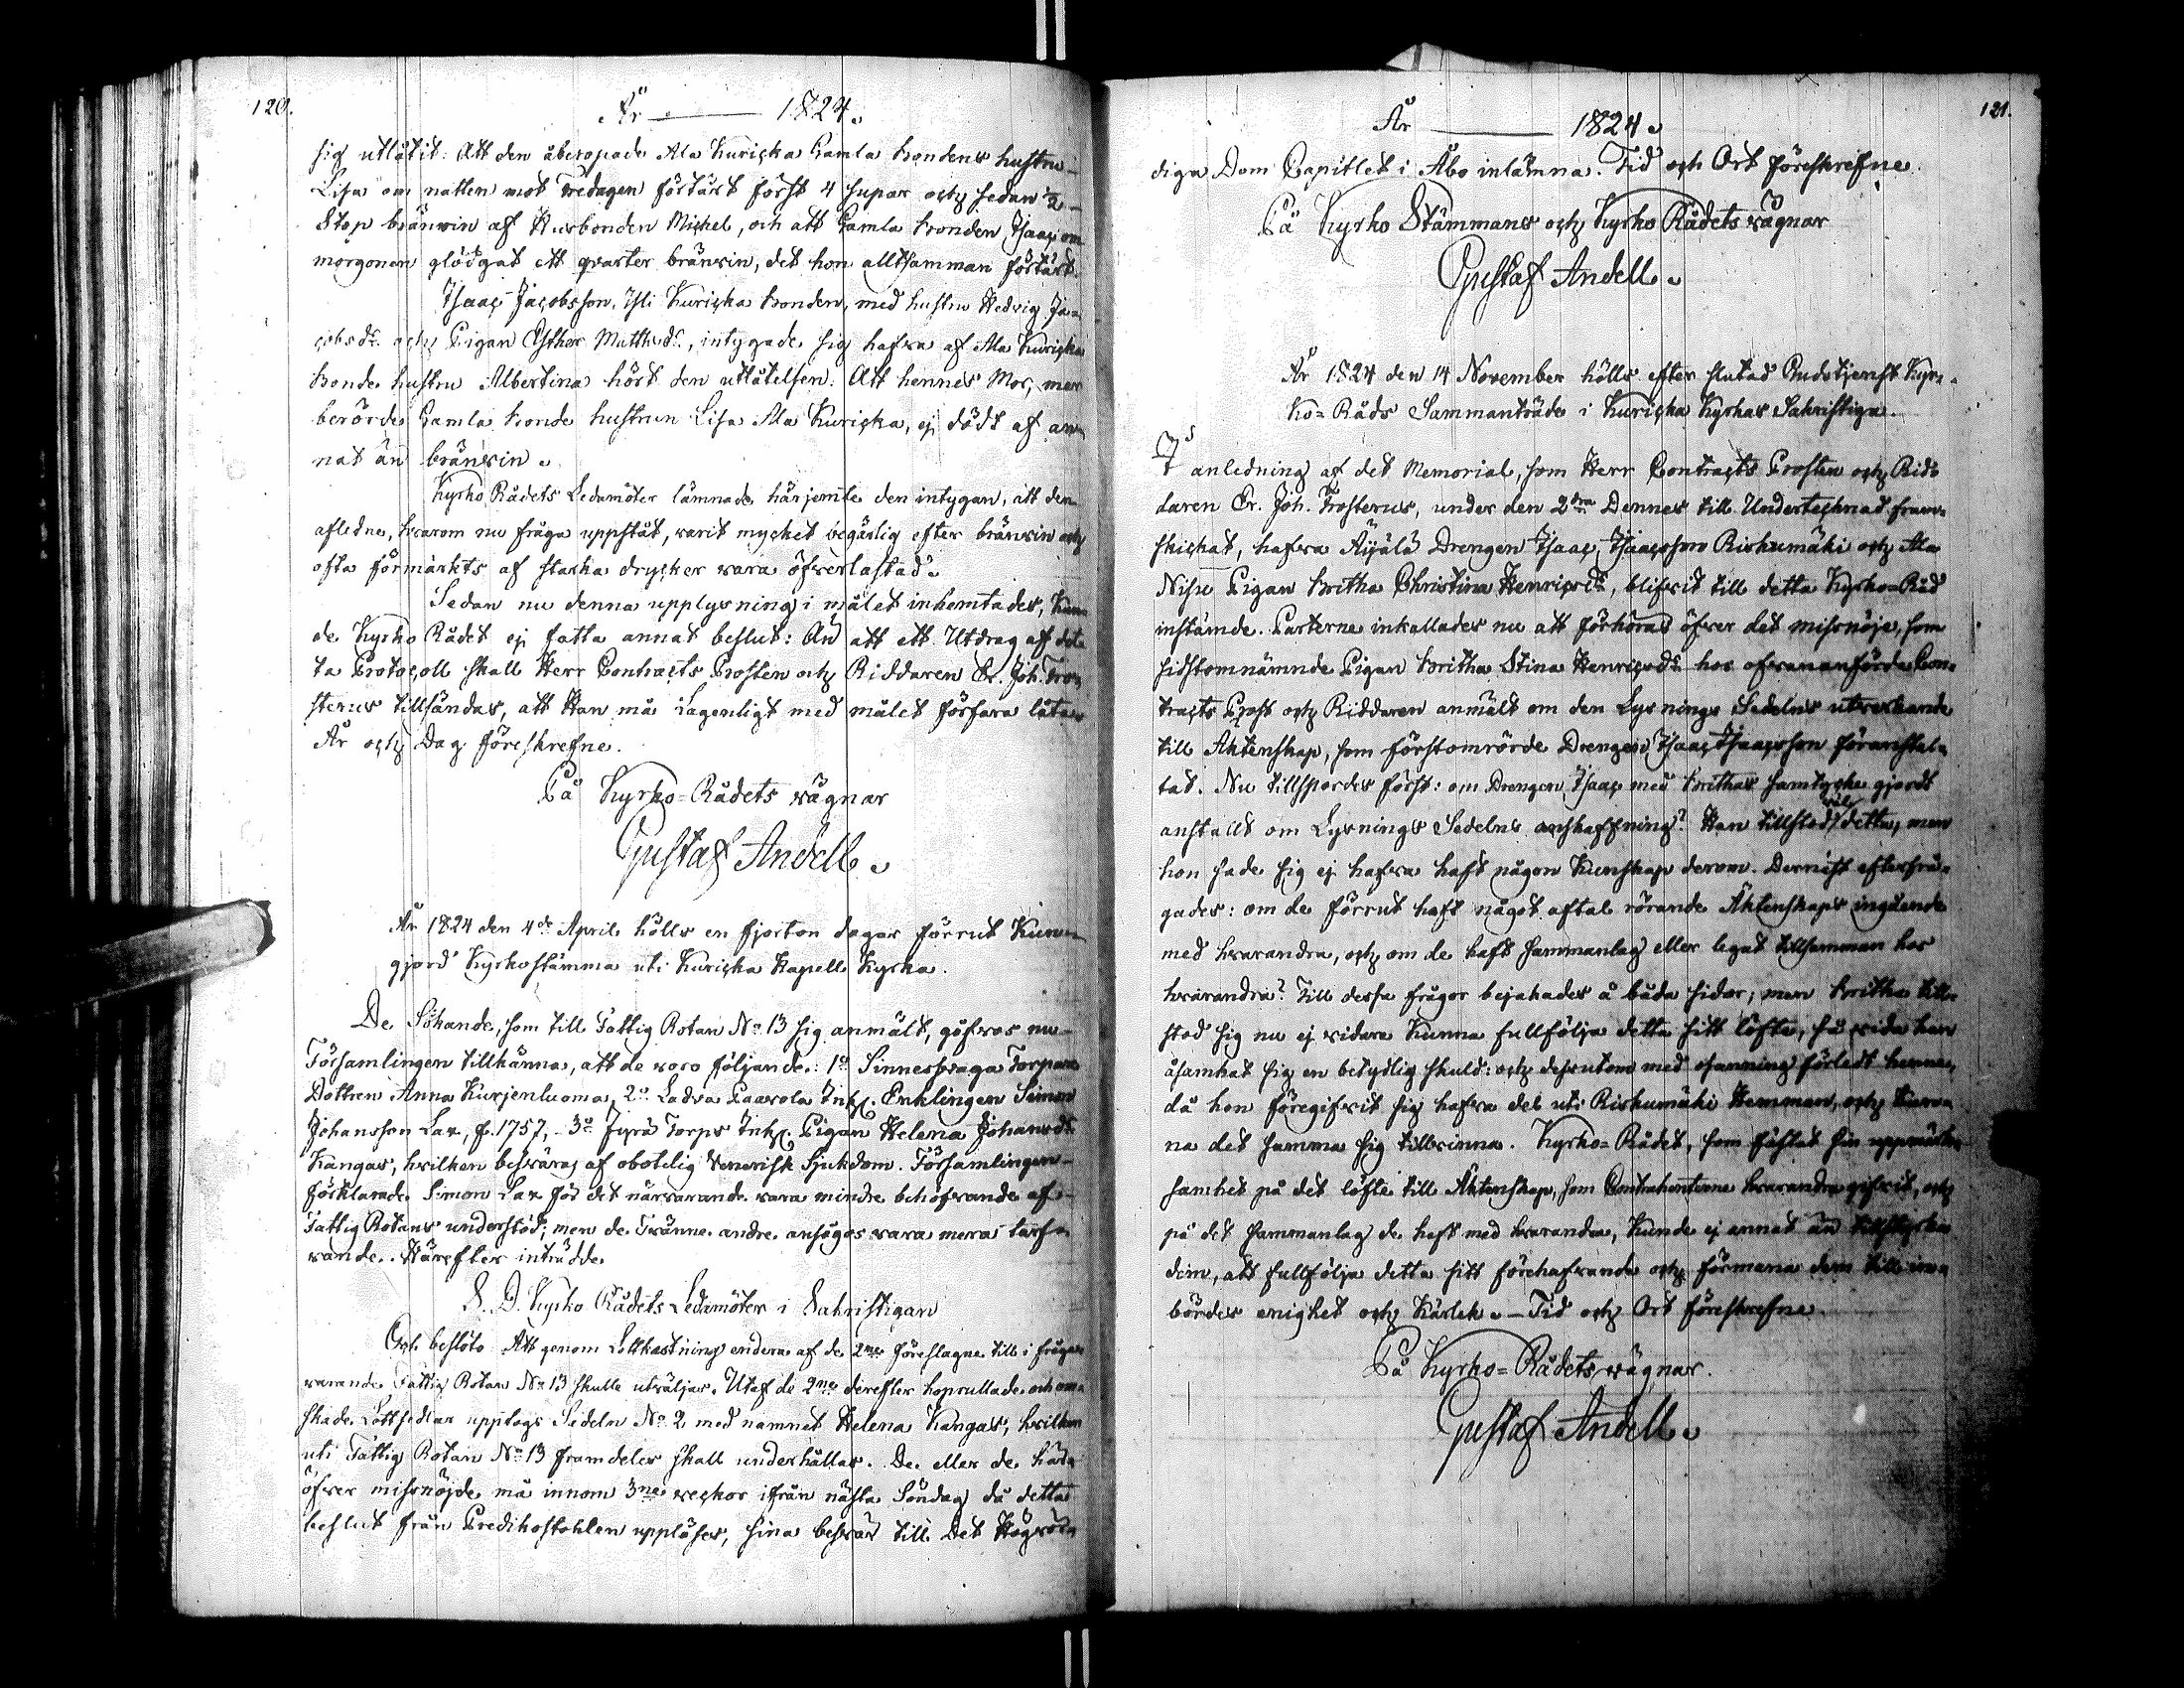 120.
År 1824.
sig utlåtit: Att den åberopade Ala Kuricka Gamla bondens hustru
Lisa om natten mot Fredagen förtärt först 4 supar och sedan 1/2
Stop bränvin af Husbonden Michel, och att Gamla bonden Isaac om
morgonen glödgat ett qvarter bränvin, det hon alltsamman förtärt.
Isaac Jacobsson Yli Kuricka bonden, med hustru Hedvig Ja-
cobsdr. och Pigan Esther Mattsdr., intygade sig hafva af Ala Kuricka
bonde hustru Albertina hört den utlåtelsen: Att hennes Mor, mer
berörde Gamla bonde hustrun Lisa Ala Kuricka, ej dödt af an-
nat än bränvin.
Kyrko Rådets Ledamöter lämnade härjemte den intygan, att den
afledne, hvarom nu fråga uppståt, varit mycket begärlig efter bränvin och
ofta förmärkts af starka drycker vara öfverlastad.
Sedan nu denna upplysning i målet inhemtades, kun-
de Kyrko Rådet ej fatta annat beslut: Än att ett Utdrag af det-
ta Protocoll skall Herr Contracts Prosten och Riddaren Er. Joh. Fro-
sterus tillsändas, att Han må Lagenligt med målet förfara låta.
År och Dag föreskrefne.
På Kyrko-Rådets vägnar
Gustaf Andell.
År 1824 den 4de April hölls en fjorton dagar förrut kun-
gjord Kyrkostämma uti Kuricka Kapell Kyrka.
De Sökande, som till Fattig Rotan No 13 sig anmält, gofvos nu
Församlingen tillkänna, att de voro följande: 1o Sinnessvaga Torpare
Dottren Anna Kurjenluoma, 2o Ladva Paavola Inh. Enklingen Simon
Johansson Lax, f. 1757, 3o Jyrä Torps Inh. Pigan Helena Johansdr.
Kangas, hvilken besväras af obotelig Venerisk Sjukdom. Församlingen
förklarade Simon Lax för det närvarande vara mindre behöfvande af
Fattig Rotans understöd; men de Tvänne andre ansågos vara mera tarf-
vande. Härefter inträdde
S. D. Kyrko Rådets Ledamöter i Sakristigan
Och beslöto Att genom Lottkastning endera af de 2ne föreslagne till i fråga
varande Fattig Rotan No 13 skulle utväljas. Utaf de 2ne derefter hoprullade och om-
skade Lottsedlar upptogs Sedeln No 2 med namnet Helena Kangas, hvilken
uti Fattig Rotan No 13 framdeles skall underhållas. De eller de härö-
öfver missnöjde må innom 3ne veckor ifrån nästa Söndag då detta
beslut från Predikostohlen uppläses, sina besvär till Det Högvör-
121.
År 1824.
diga Dom Capitlet i Åbo inlämna. Tid och Ort föreskrefne.
På Kyrko Stämmans och Kyrko Rådets vägnar
Gustaf Andell.
År 1824 den 14 November hölls efter slutad Gudstjenst Kyr-
ko-Råds Sammanträde i Kuricka Kyrkas Sakristiga.
I anledning af det Memorial, som Herr Contracts Prosten och Rid-
daren Er. Joh. Frosterus, under den 2dra Dennes till Undertecknad fram-
skickat, hafva Äijälä Drengen Isaac Isaacsson Riskumäki och Ala
Nisse Pigan Britha Christina Henricsdr., blifvit till detta Kyrko-Råd
instämde. Parterne inkallades nu att förhöras öfver det missnöje, som
sidstomnämnde Pigan Britha Stina Henricsdr. hos ofvananförde Con-
tracts Prost och Riddaren anmält om den Lysnings Sedelns utverkande
till Äktenskap, som förstomrörde Drengen Isaac Isaacsson föranstal-
tad. Nu tillspordes först: om Drengen Isaac med Brithas samtycke gjordt
anstallt om Lysnings Sedelns anskaffning? Han tillstod väl detta, men
hon sade sig ej hafva haft någon kunskap derom. Dernäst efterfrå-
gades: om de förrut haft något aftal rörande Äktenskaps ingående
med hvarandra, och om de haft sammanlag eller legat tillsamman hos
hvarandra? Till dessa frågor bejakades å båda sidor; men Britha till-
stod sig nu ej vidare kunna fullfölja detta sitt löfte, så vida han
åsamkat sig en betydlig skuld: och dessutom med osanning förledt henne,
då hon föregifvit sig hafva del uti Riskumäki Hemman, och kun-
na det samma sig tillvinna. Kyrko-Rådet, som fästat sin uppmärk-
samhet på det löfte till Äktenskap, som Contrahenterne hvarandra gifvit, och
på det sammanlag de haft med hvarandra, kunde ej annat än tillstyrka
dem, att fullfölja detta sitt förehafvande och förmana dem till in-
bördes enighet och kärlek. Tid och Ort föreskrefne.
På Kyrko-Rådets vägnar.
Gustaf Andell.